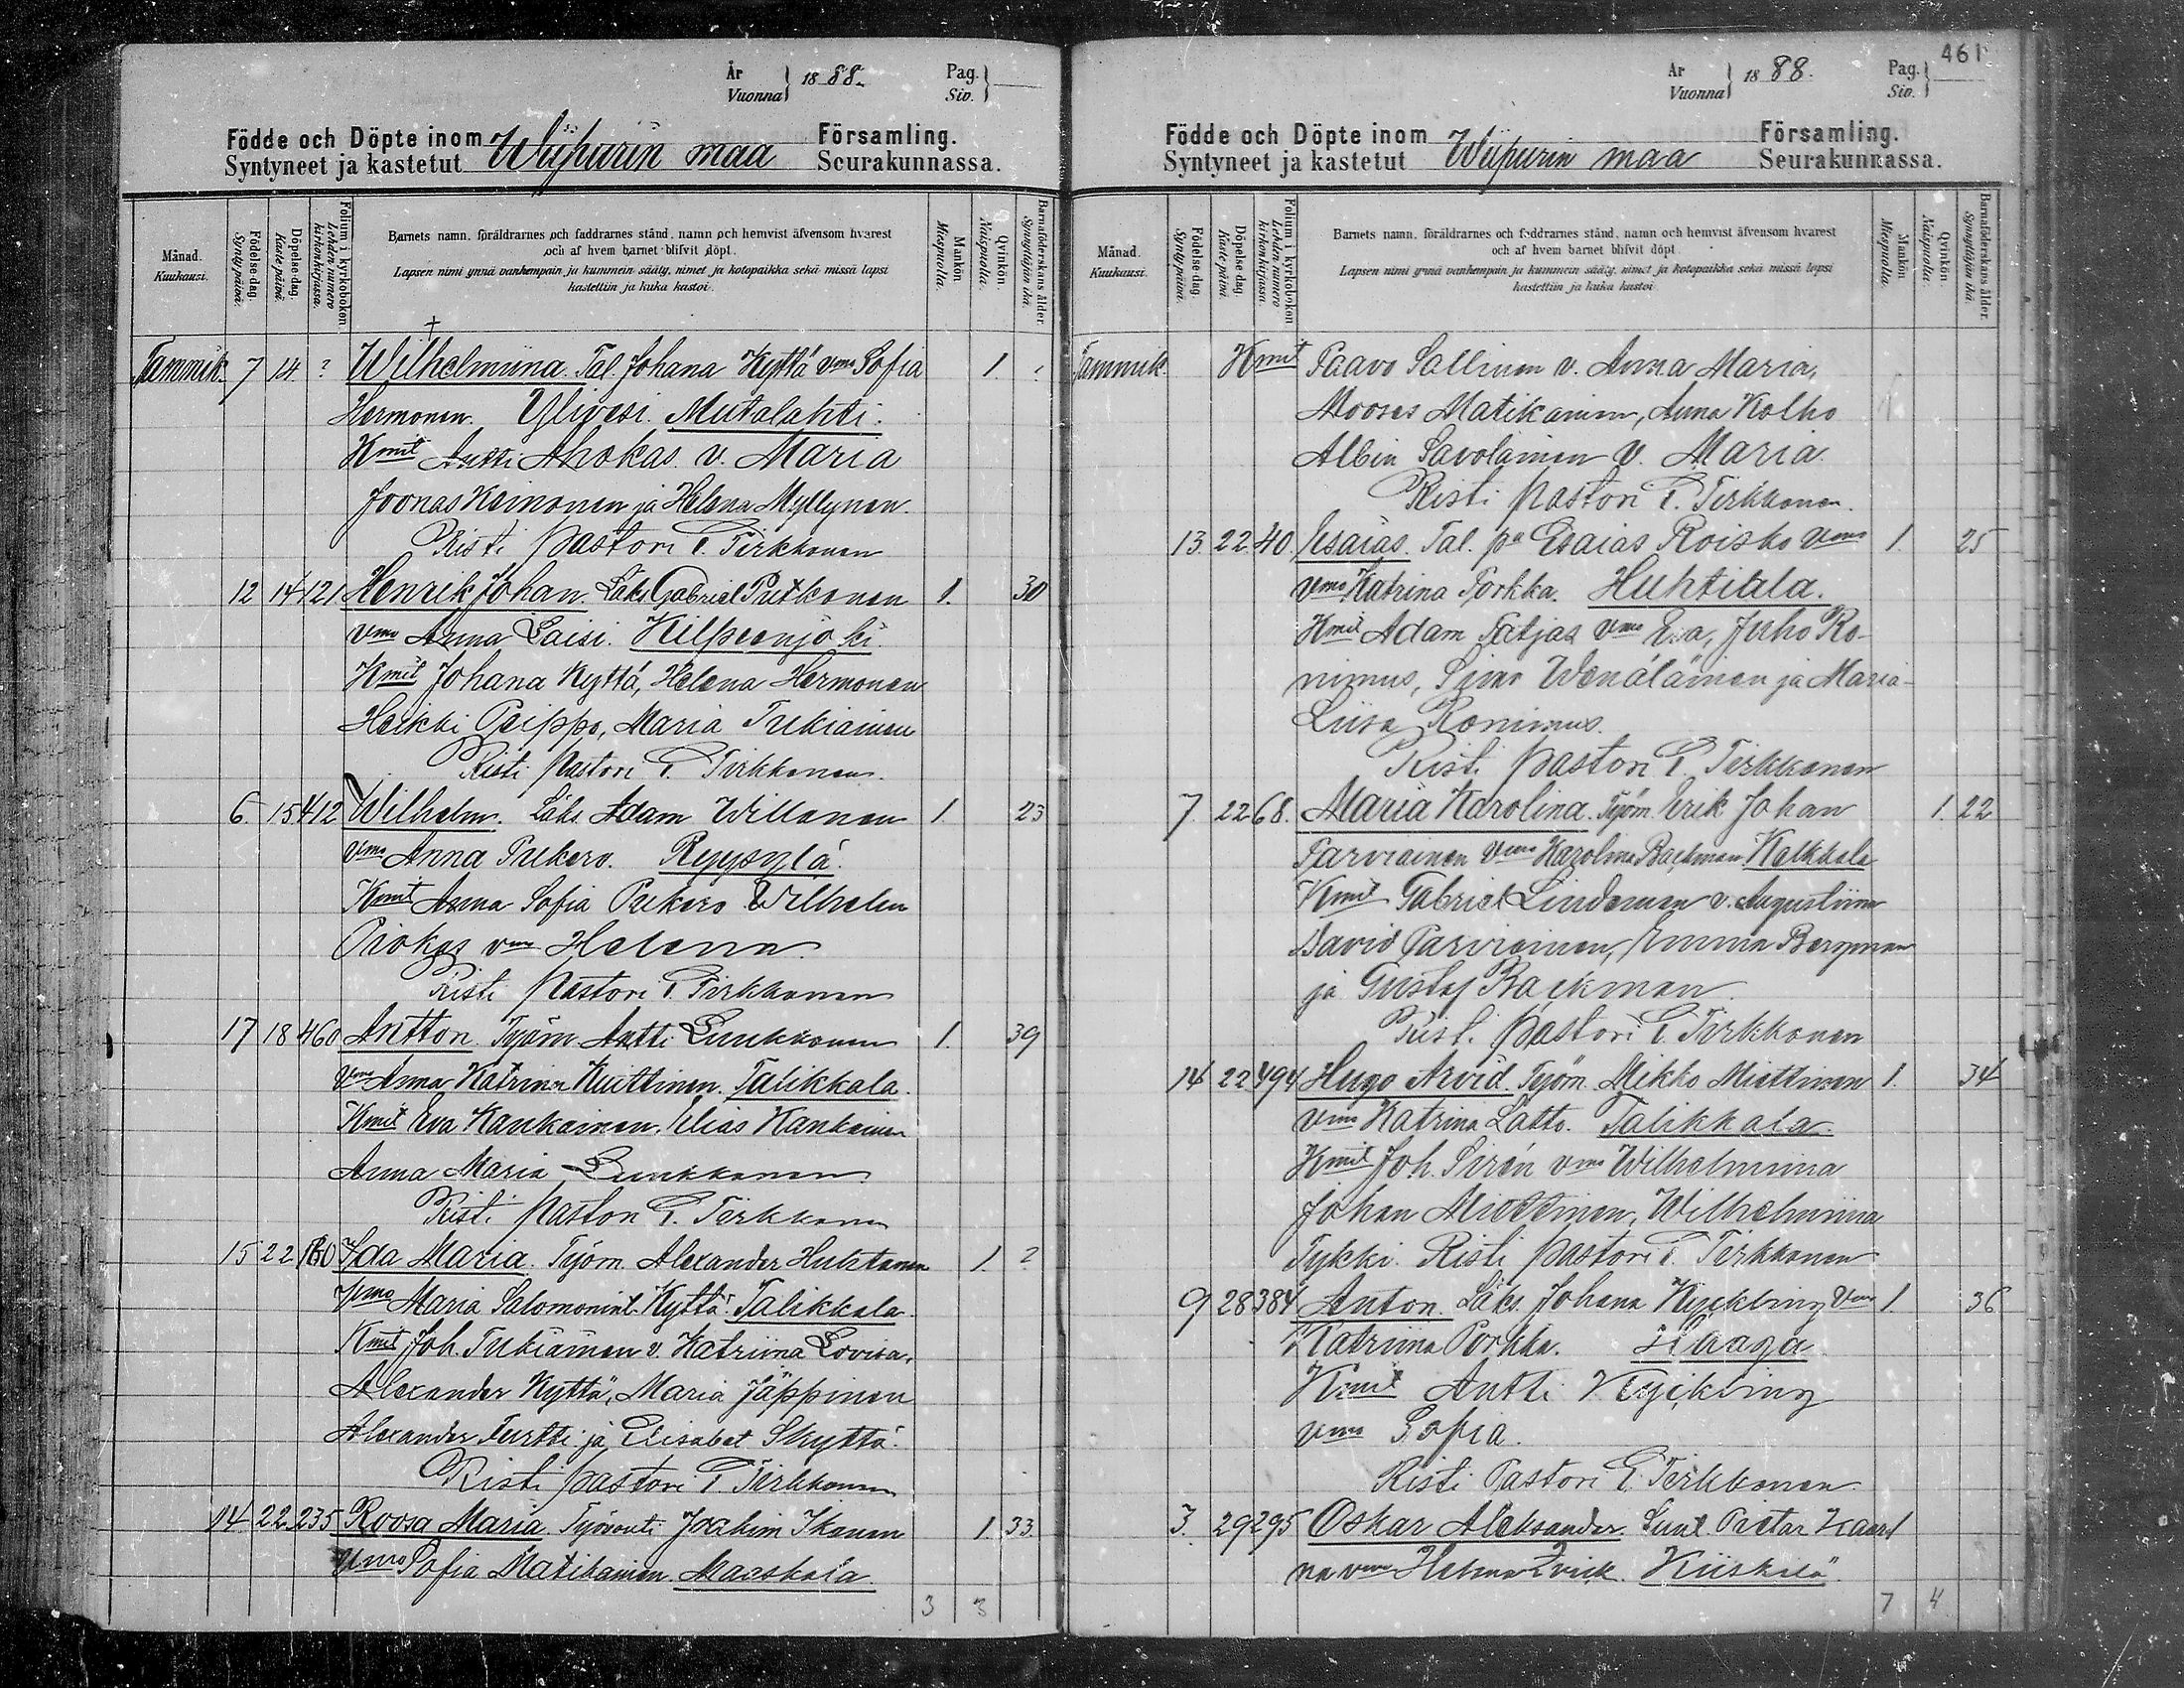 År
Vuonna } 1888.
Pag.
Siv. }
Födde och Döpte inom Wiipurin maa Församling.
Syntyneet ja kastetut Seurakunnassa.
Månad. Kuukausi.
Födelse-dag. Syntypäivä.
Döpelse-dag. Kastepäivä.
Folium i kyrkoboken Lehden numero kirkonkirjassa.
Barnets namn, föräldrarnes och faddrarnes stånd, namn och hemvist äfvensom hvarest
och af hvem barnet blifvit döpt.
Lapsen nimi ynnä vanhempain ja kummein sääty, nimet ja kotopaikka sekä missä lapsi
kastettiin ja kuka kastoi.
Mankön. Miespuolia.
Qvinkön. Naispuolia.
Barnaföderskans ålder. Synnyttäjän ikä.
Tammik. 7 14 ? Wilhelmiina. Tal. Johana Kyttä vmo Sofia 1. ?
Hermonen. Ylivesi. Mutalahti.
Kmit Antti Ahokas v. Maria
Joonas Keinonen ja Helena Myllynen.
Risti pastori T. Tirkkonen
12 14 121 Henrik Johan. Läks. Gabriel Pitkonen 1. 30
vmo Anna Laisi. Kilpeenjoki.
Kmit Johana Kyttä, Helena Hermonen
Heikki Peippo, Maria Tukiainen
Risti Pastori T. Tirkkonen.
6. 15 412 Wilhelm. Läks. Adam Willanen 1. 23
vmo Anna Pukero. Ryysylä.
Kmit Anna Sofia Pukero Wilhelm
vmo Helena.
Risti Pastori T. Tirkkonen
17 18 460 Antton. Työm. Antti Luukkonen 1. 39
vmo Anna Katrina Kuittinen. Talikkala.
Kmit Eva Kankainen, Elias Kankainen
Anna Maria Luukkonen.
Risti Pastori T. Tirkkonen
15 22 160 Ida Maria. Työm. Alexander Huhtanen 1. ?
Vmo Maria Salomonint. Kyttä. Talikkala.
Kmit Joh. Tukiainen v. Katriina Lovisa,
Alexander Kyttä, Maria Jäppinen
Alexander Turtti ja Elisabet Skyttä.
Risti pastori T. Tirkkonen
14 22 235 Roosa Maria. Työvouti Joakim Ikonen 1. 33.
Vmo Sofia Matikainen. Maaskola.
3 3
461
År
Vuonna } 1888.
Pag.
Siv. }
Födde och Döpte inom Wiipurin maa Församling.
Syntyneet ja kastetut Seurakunnassa.
Månad. Kuukausi.
Födelse-dag. Syntypäivä.
Döpelse-dag. Kastepäivä.
Folium i kyrkoboken Lehden numero kirkonkirjassa.
Barnets namn, föräldrarnes och faddrarnes stånd, namn och hemvist äfvensom hvarest
och af hvem barnet blifvit döpt.
Lapsen nimi ynnä vanhempain ja kummein sääty, nimet ja kotopaikka sekä missä lapsi
kastettiin ja kuka kastoi
Mankön. Miespuolia.
Qvinkön. Naispuolia.
Barnaföderskans ålder. Synnyttäjän ikä.
Tammik. Kmit Paavo Sallinen v. Anna Maria,
Mooses Matikainen, Anna Kolho
Albin Savolainen v. Maria.
Risti pastori T. Tirkkonen.
13. 22 40 Esaias. Tal. pa Esaias Roisko vmo 1. 25
vmo Katrina Porkka. Huhtiala.
Kmit Adam Tätjas vmo Eva, Juho Ro-
nimus, Simo Wenäläinen ja Maria
Liisa Ronimus.
Risti pastori T. Tirkkonen
7. 22 68. Maria Karolina. Työm. Erik Johan 1. 22
Parviainen vmo Karolina Backman Kalkkala
Kmit Gabriel Lindeman v. Agustiina
David Parviainen, Emma Bergman
ja Gustaf Backman
Risti pastori T. Tirkkonen
14 22 494 Hugo Arvid. Työm. Mikko Miettinen 1. 34
vmo Katrina Latto. Talikkala.
Kmit Joh. Sirén vmo Wilhelmiina
Johan Miettinen, Wilhelmiina
Tykki. Risti pastori T. Tirkkonen
9 28 384 Anton. Läks. Johana Kyckling vmo 1. 36
Katriina Porkka. Haaga
Kmit Antti Kyckling
vmo Sofia.
Risti Pastori T. Tirkkonen
3. 29 295 Oskar Aleksander. Suut. Pietar Kaar- 1
na vmo Helena Kiiskilä.
7 4